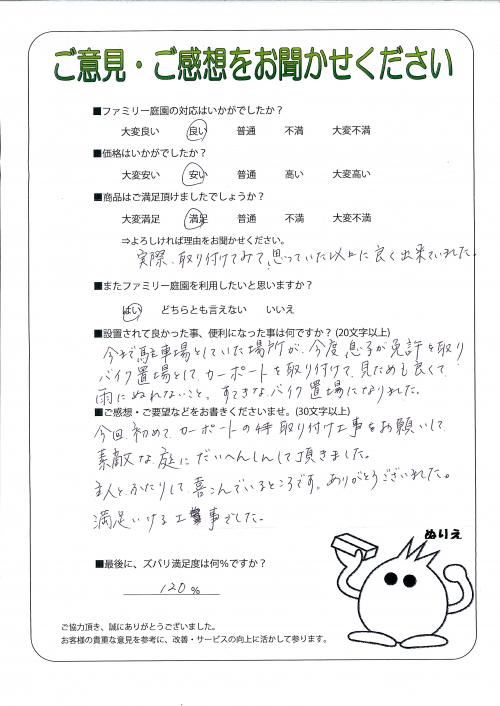 ご意見・ご感想をお聞かせください
■ファミリー庭園の対応はいかがでしたか?
大変良い 良い 普通 不満 大変不満
■価格はいかがでしたか?
大変安い 安い 普通 高い 大変高い
■商品はご満足頂けましたでしょうか?
大変満足 満足 普通 不満 大変不満
⇒よろしければ理由をお聞かせください。
実際、取り付けてみて、思っていた以上に良く出来ていました。
■またファミリー庭園を利用したいと思いますか?
はい どちらとも言えない いいえ
■設置されて良かった事、便利になった事は何ですか?(20文字以上)
今まで駐車場としていた場所が、今度、息子が免許を取り
バイク置場として、カーポートを取り付けて、見ためも良くて
雨にぬれないこと。すてきなバイク置場になりました。
■ご感想・ご要望などをお書きくださいませ。(30文字以上)
今回初めて、カーポートの 取り付け工事をお願いして
素敵な庭にだいへんしんして頂きました。
主人とふたりして喜こんでいるところです。ありがとうございました。
満足いける工事でした。
■最後に、ズバリ満足度は何%ですか?
120 %
ぬりえ
ご協力頂き、誠にありがとうございました。
お客様の貴重な意見を参考に、改善・サービスの向上に活かして参ります。